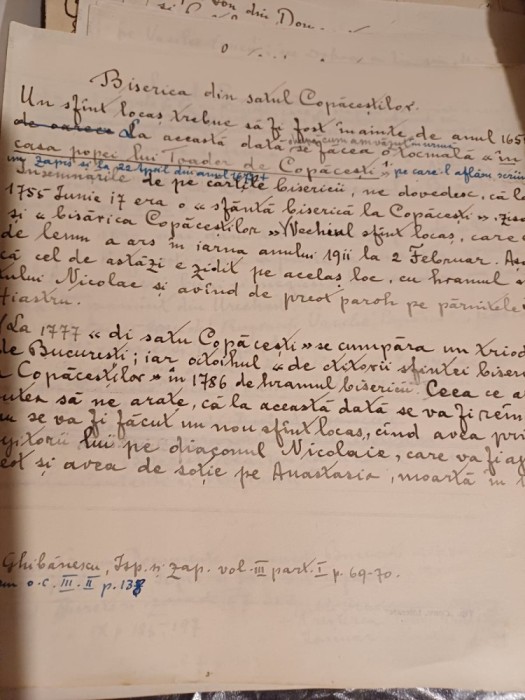 von din Dou.
și
Biserica din satul Copăceștilor.
Un sfint locaș trebue să fi fost înainte de anul 165
de oarece La această dată se făcea o tocmală « în
casa popei lui Toader de Copăcești » pe care-l aflăm scriin
Zapis și la 22 April din anul
Însemnările de pe cărțile bisericii, ne dovedesc, că l
1755 Iunie 17 era o « sfântă biserică la Copăcești »
și « bisărica Copăceștilor » Vechiul sfint locaș, care
de lemn a ars în iarna anului 1911 la 2 Februar. As
că cel de astăzi e zidit pe acelaș loc, cu hramul
tului Nicolae și avind de preot paroh pe părintele
tiastru.
La 1777 « di satu Copăcești » se cumpăra un triod
de București; iar octoihul « de ctitorii sfintei biseri
Copăceștilor » în 1786 de hramul bisericii. Ceea ce a
putea să ne arate, că la această dată se va fi rem
au se va fi făcut un nou sfint locaș, cind avea pri
lui pe diaconul Nicolaie, care va fi a
eot și avea de soție pe Anastasia, moartă în
Ghibănescu, Isp. și zap. vol. III part. I p. 69-70.
o.c. III-II p. 138